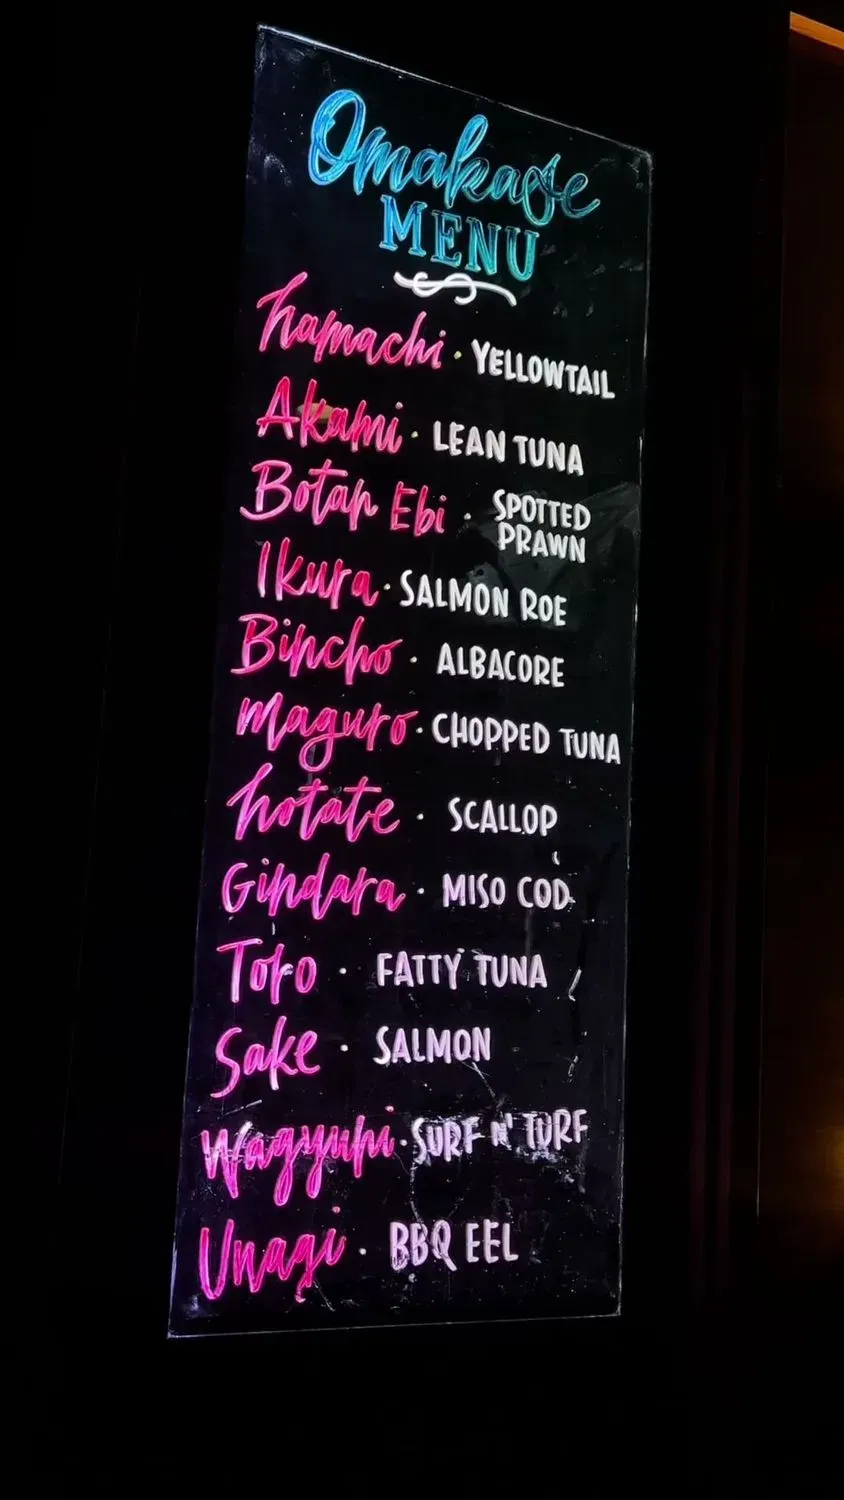 Omakase
MENU
hamachi · YELLOWTAIL
Akami · LEAN TUNA
Botan Ebi · SPOTTED PRAWN
Ikura · SALMON ROE
Bincho · ALBACORE
maguro · CHOPPED TUNA
hotate · SCALLOP
Gindara · MISO COD
Toro · FATTY TUNA
Sake · SALMON
Wagyuni · SURF N' TURF
Unagi · BBQ EEL